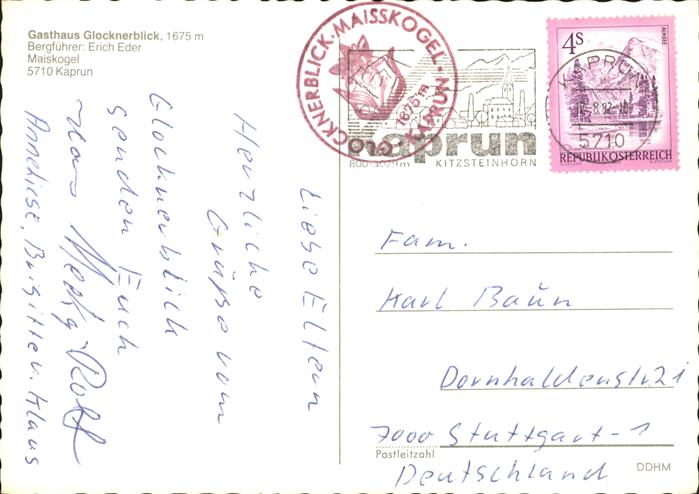 Gasthaus Glocknerblick, 1675 m
Bergführer: Erich Eder
Maiskogel
5710 Kaprun
GLOCKNERBLICK · MAISSKOGEL · KAPRUN
1675 m
kaprun
800-3029 m KITZSTEINHORN
KAPRUN
5710
4S
ALMSEE
REPUBLIK ÖSTERREICH
Liebe Eltern
Herzliche
Grüße vom
Glocknerblick
senden Euch
Hans Rolf
Anneliese, Brigitte u. Klaus
Fam.
Karl Baun
Dornhaldenstr. 21
7000 Stuttgart-1
Postleitzahl
Deutschland
DDHM